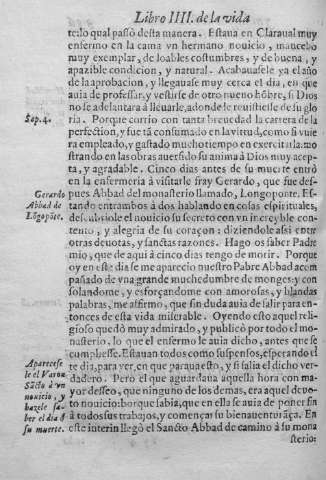 Libro IIII. de la vida
te: lo qual passò desta manera. Estaua en Claraual muy
enfermo en la cama vn hermano nouicio, mancebo
muy exemplar, de loables costumbres, y de buena, y
apazible condicion, y natural. Acabauasele ya el año
de la aprobacion, y llegauase muy cerca el dia, en que
auia de professar, y vestirse de otro nueuo hõbre, si Dios
no se adelantara à lleuarle, adonde le reuistiesse de su glo
Sap. 4.
ria. Porque corrio con tanta breuedad la carrera de la
perfection, y fue tã consumado en la virtud, como si vuie
ra empleado, y gastado mucho tiempo en exercitarla: mo
strando en las obras auersido su anima à Dios muy acep-
ta, y agradable. Cinco dias antes de su muerte entrò
en la enfermeria à visitarle fray Gerardo, que fue des-
Gerardo
Abbad de
Lõgopõte.
pues Abbad del monasterio llamado, Longoponte. Es-
tando entrambos à dos hablando en colas espirituales,
descubriole el nouicio su secreto con vn increyble con-
tento, y alegria de su coraçon: diziendole assi entre
otras deuotas, y sanctas razones. Hago os saber Padre
mio, que de aqui à cinco dias tengo de morir. Porque
oy en este dia se me aparecio nuestro Padre Abbad acom
pañado de vna grande muchedumbre de monges: y con
solandome, y esforçandome con amorosas, y blandas
palabras, me afirmo, que sin duda auia de salir para en-
tonces de esta vida miserable. Oyendo esto aquel reli-
gioso quedò muy admirado, y publicò por todo el mo-
nasterio, lo que el enfermo le auia dicho, antes que se
Aparecese
le el Varon
Sãcto à vn
nouicio, y
hazele sa-
ber el dia d
su muerte.
cumpliesse. Estauan todos como suspensos, esperando el
te dia, para ver, en que paraua esto, y si salia el dicho ver-
dadero. Pero el que aguardaua aquella hora con ma-
yor desseo, que ninguno de los demas, era aquel deuo-
to nouicio: porque sabia, que en ella se auia de poner fin
à todos sus trabajos, y començar su bienauenturãça. En
este interin llegò el Sancto Abbad de camino à su mona
sterio: